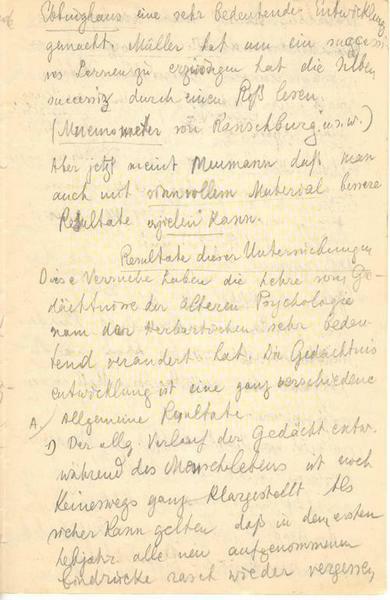 Ebbinghaus eine sehr bedeutende Entwicklung
gemacht. Müller hat um ein successi
ves Lernen zu erzwingen hat die Silben
successiv durch einen lesen.
(Mnemometer von Ranschburg u.s.w.)
Aber jetzt meint Meumann daß man
auch mit sinnvollem Material bessere
Resultate erzielen kann.
Resultate dieser Untersuchungen
Diese Versuche haben die Lehre vom Ge-
dächtnisse der älteren Psychologie
nam der Herbartschen sehr bedeu-
tend verändert hat. Die Gedächtnis
entwicklung ist eine ganz verschiedene
A. Allgemeine Resultate.
1) Der allg. Verlauf der Gedächtentw.
während des Menschlebens ist noch
keineswegs ganz klargestellt Als
sicher kann gelten daß in dem ersten
Lebjahr alle neu aufgenommenen
Eindrücke rasch wieder vergessen